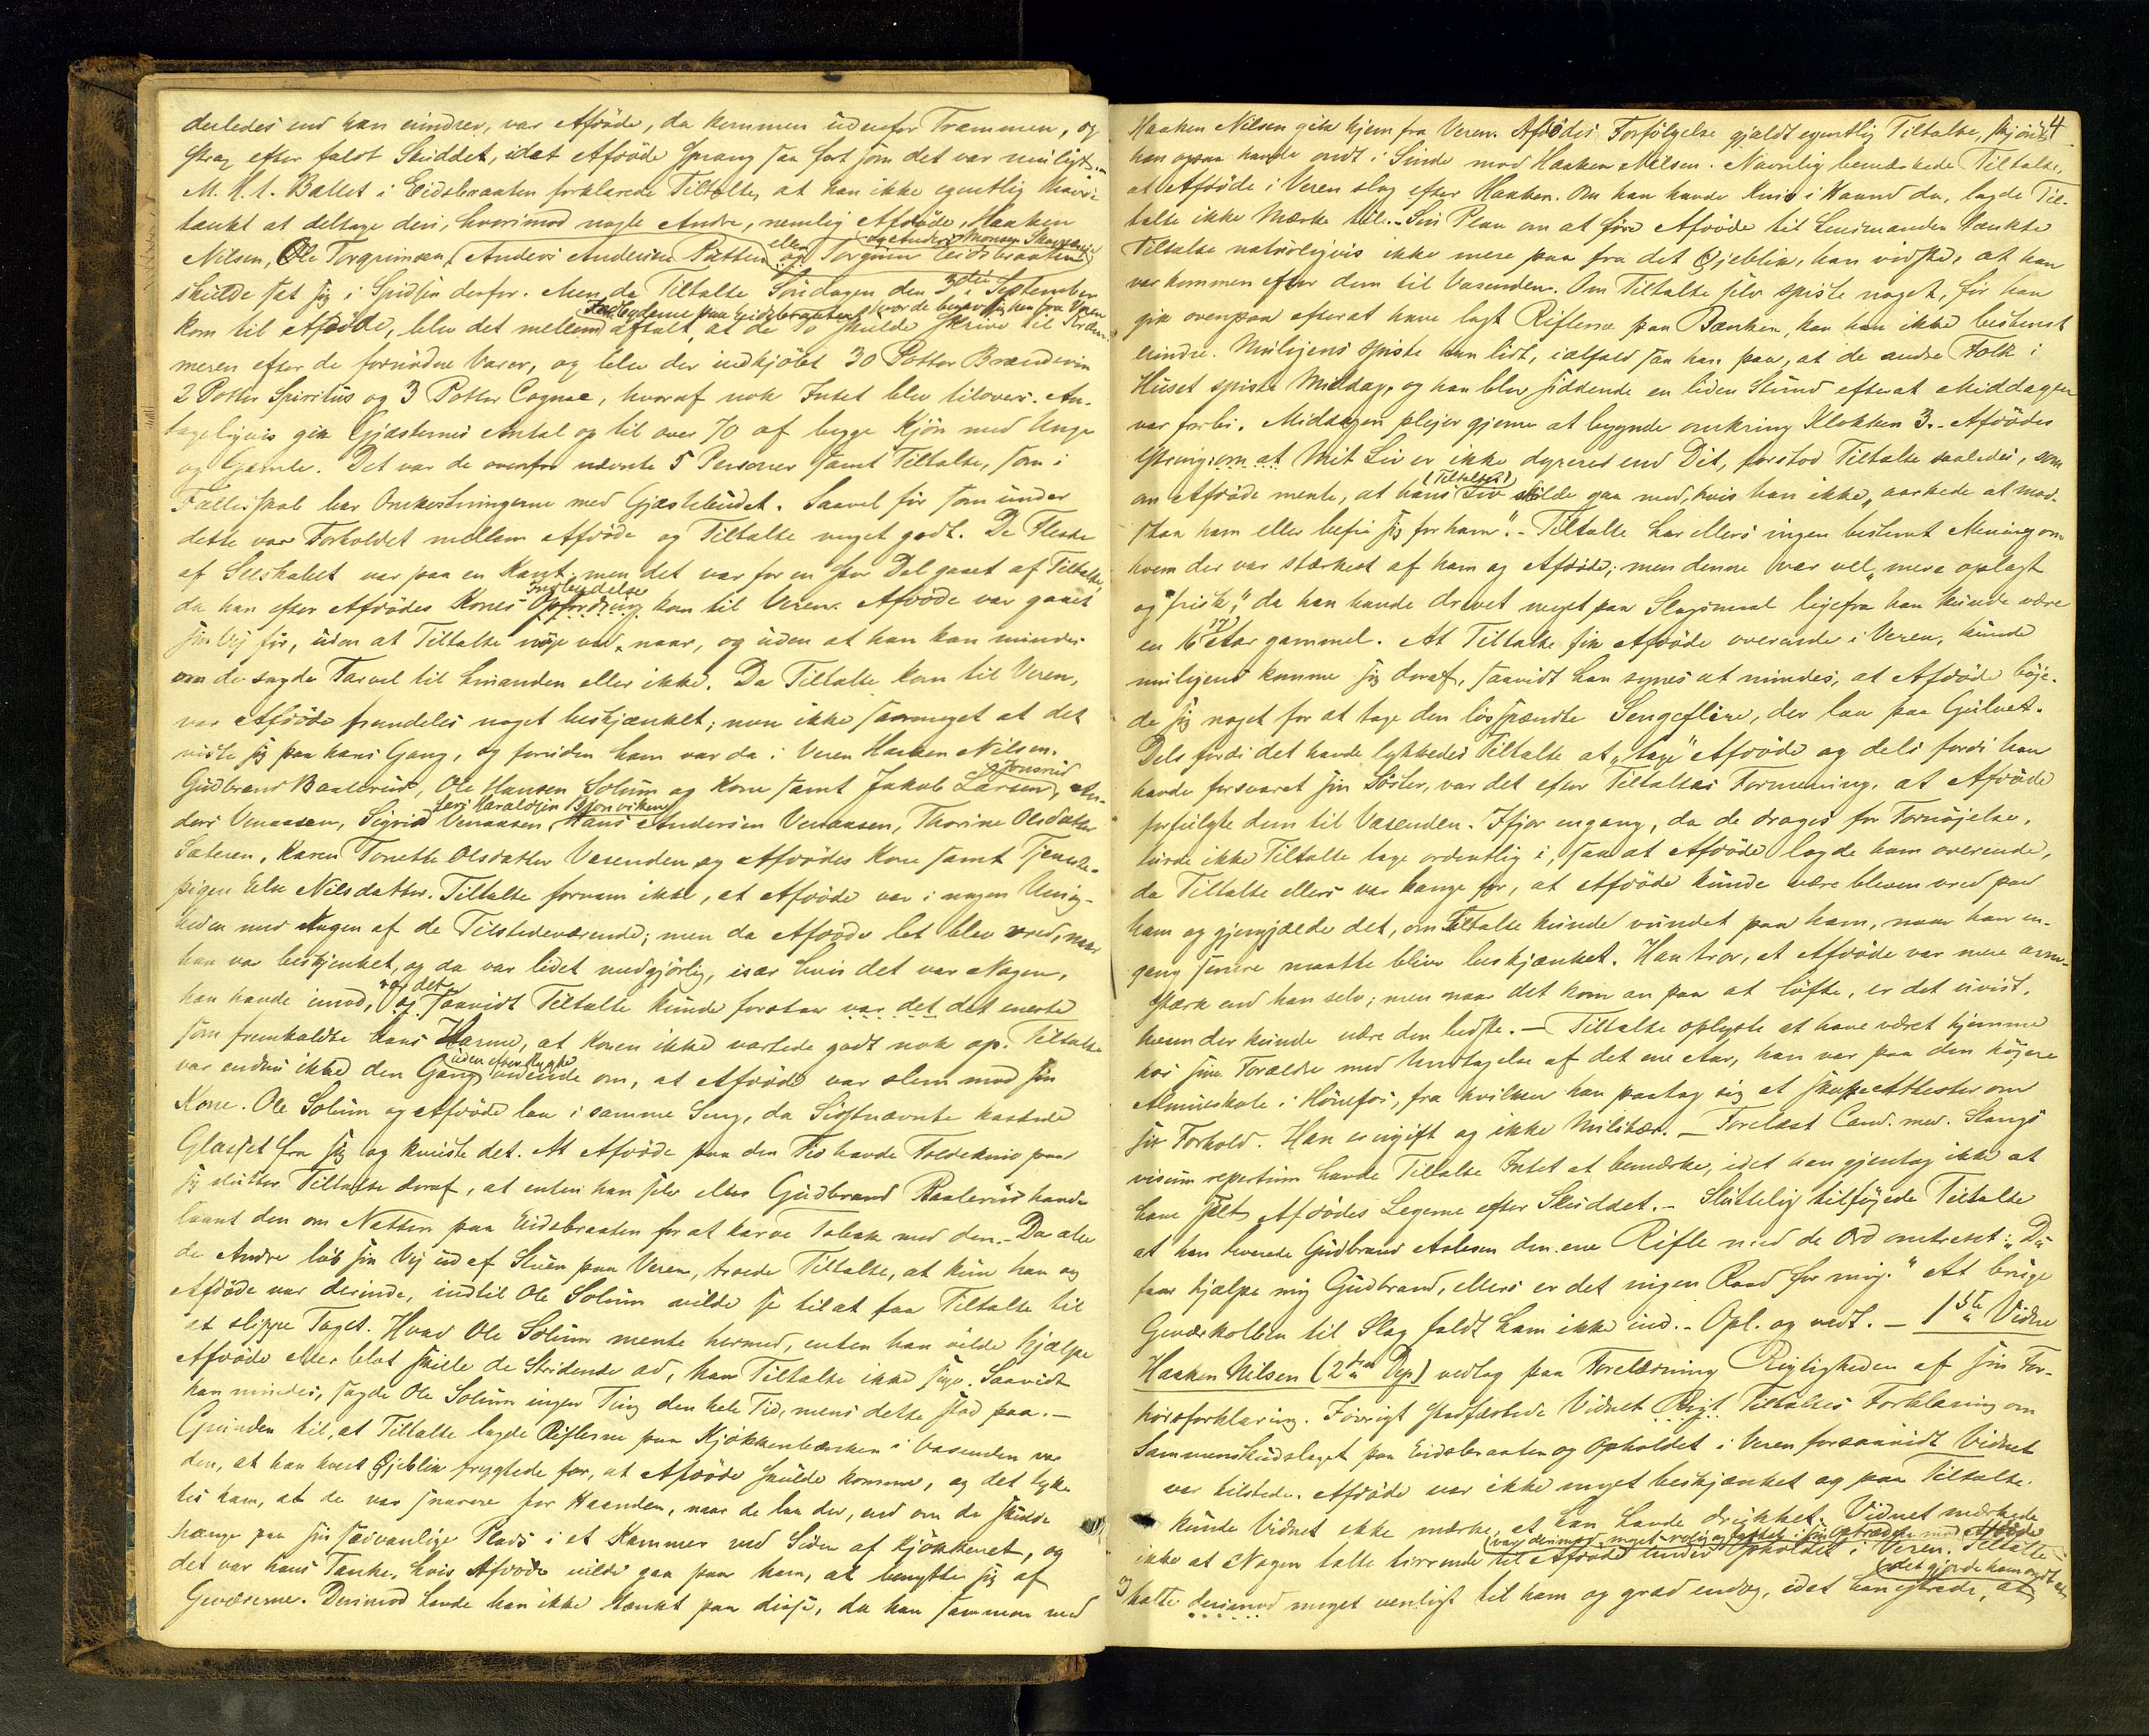 derledes end han erindrer, var Afdöde, da kommen udenfor Trammen, og
strax efter faldt Skuddet, idet Afdöde sprang saa fort som det var muligt.
M. H. t. Ballet i Eidsbraaten forklarede Tiltalte, at han ikke egentlig havde
tænkt at deltage deri, hvorimod nogle Andre, nemlig Afdöde, Haaken
Nilsen, Ole Torgrimsen, Anders Andersen Pütten eller og Torgrim Eidsbraaten og Anders Monsen
skulde sat sig i Spidsen derfor. Men da Tiltalte Söndagen den 3die September
kom til Afdöde, blev det mellem Indbyderne paa Eidsbraaten aftalt, at de To skulde skrive til Kræm-
meren efter de fornödne Varer, og blev der indkjöbt 30 Potter Brændevin
2 Potter Spiritus og 3 Potter Cognac, hvoraf nok Intet blev tilovers. An-
tageligvis gik Gjæsternes Antal op til over 70 af begge Kjön med Unge
og Gamle. Det var de ovenfor nævnte 5 Personer samt Tiltalte, som i
Fællesskab bar Omkostningerne med Gjæstebudet. Saavel för som under
dette var Forholdet mellem Afdöde og Tiltalte meget godt. De Fleste
af Selskabet var paa en Kant, men det var for en stor Del gaaet af Tiltalte,
da han efter Afdödes Kones Opfordring Indbydelse kom til Veren. Afdöde var gaaet
sin Vej för, uden at Tiltalte nöje ved, naar, og uden at han kan mindes
om de sagde Farvel til hinanden eller ikke. Da Tiltalte kom til Veren,
var Afdöde fremdeles noget beskjænket; men ikke saameget at det
viste sig paa hans Gang, og foruden ham var da i Veren Haaken Nilsen,
Gudbrand Baalerud, Ole Hansen Solum og Kone samt Jakob Larsen Jonsrud, An-
ders Venaasen, Sigrid Venaasen, Lars Haraldsen Bjonviken, Hans Andersen Venaasen, Thorine Olsdatter
Sæteren, Karen Tonette Olsdatter Vasenden og Afdödes Kone samt Tjeneste-
pigen Eli Nilsdatter. Tiltalte fornam ikke, at Afdöde var i nogen Uenig-
heden med Nogen af de Tilstedeværende; men da Afdöde let blev vred, naar
han var beskjænket, og da var lidet medgjörlig, især hvis det var Nogen,
han havde imod, var det og saavidt Tiltalte kunde forstaa var det det eneste
som fremkaldte hans Harme, at Konen ikke vartede godt nok op. Tiltalte
var endnu ikke den Gang uden efter Rygte vidende om, at Afdöde var slem mod sin
Kone. Ole Solum og Afdöde laa i samme Seng, da Sidstnævnte kastede
Glasset fra sig og knuste det. At Afdöde paa den Tid havde Foldekniv paa
sig slutter Tiltalte deraf, at enten han selv eller Gudbrand Baalerud havde
laant den om Natten paa Eidsbraaten for at karve Tobak med den. Da alle
de Andre löb sin Vej ud af Stuen paa Veren, troede Tiltalte, at kun han og
Afdöde var derinde, indtil Ole Solum vilde se til at faa Tiltalte til
at slippe Taget. Hvad Ole Solum mente hermed, enten han vilde hjælpe
Afdöde eller blot skille de Stridende ad, kan Tiltalte ikke sige. Saavidt
han mindes, sagde Ole Solum ingen Ting den hele Tid, mens dette stod paa.
Grunden til, at Tiltalte lagde Riflerne paa Kjökkenbænken i Vasenden var
den, at han hvert Öjeblik frygtede for, at Afdöde skulde komme, og det tyk-
tes ham, at de var snarere for Haanden, naar de laa der, end om de skulde
hænge paa sin sædvanlige Plads i et Kammer ved Siden af Kjökkenet, og
det var hans Tanke, hvis Afdöde vilde gaa paa ham, at benytte sig af
Geværerne. Derimod havde han ikke tænkt paa disse, da han sammen med
4
Haaken Nilsen gik hjem fra Veren. Afdödes Forfölgelse gjaldt egentlig Tiltalte, skjöndt
han ogsaa havde ondt i Sinde mod Haaken Nilsen. Navnlig bemærkede Tiltalte,
at Afdöde i Veren slog efter Haaken. Om han havde Kniv i Haand da, lagde Til-
talte ikke Mærke til. Sin Plan om at före Afdöde til Lensmanden tænkte
Tiltalte naturligvis ikke mere paa fra det Öjeblik, han vidste, at han
var kommen efter dem til Vasenden. Om Tiltalte selv spiste noget, för han
gik ovenpaa efterat have lagt Riflerne paa Bænken, kan han ikke bestemt
erindre. Muligens spiste han lidt, ialfald saa han paa, at de andre Folk i
Huset spiste Middag, og han blev siddende en liden Stund efterat Middagen
var forbi. Middagen plejer gjerne at begynde omkring Klokken 3. Afdödes
Ytring om at Mit Liv er ikke dyrere end Dit, forstod Tiltalte saaledes, som
om Afdöde mente, at hans (Tiltaltes) Liv skulde gaa med, hvis han ikke „aarkede at mod-
staa ham eller befri sig for ham". Tiltalte har ellers ingen bestemt Mening om
hvem der var stærkest af ham og Afdöde; men denne var vel „mere oplagt
og frisk", da han havde drevet meget paa Slagsmaal ligefra han kunde være
en 16 17 Aar gammel. At Tiltalte fik Afdöde overende i Veren, kunde
muligens komme sig deraf, saavidt han synes at mindes, at Afdöde böje-
de sig noget for at tage den lösspændte Sengefjære, der laa paa Gulvet.
Dels fordi det havde lykkedes Tiltalte at „tage" Afdöde og dels fordi han
havde forsvaret sin Söster, var det efter Tiltaltes Formening, at Afdöde
forfulgte dem til Vasenden. Ifjor engang, da de droges for Fornöjelse,
turde ikke Tiltalte tage ordentlig i, saa at Afdöde lagde ham overende,
da Tiltalte ellers var bange for, at Afdöde kunde være bleven vred paa
ham og gjengjælde det, om Tiltalte kunde vundet paa ham, naar han en-
gang senere maatte blive beskjænket. Han tror, at Afdöde var mere arm-
stærk end han selv; men naar det kom an paa at löfte, er det uvist,
hvem der kunde være den bedste. — Tiltalte oplyste at have været hjemme
hos sine Forældre med Undtagelse af det ene Aar, han var paa den höjere
Almueskole i Hönefos, fra hvilken han paatog sig at skaffe Attester om
sit Forhold. Han er ugift og ikke Militær. — Forelæst Cand. med. Stangs
visum repertum havde Tiltalte Intet at bemærke, idet han gjentog ikke at
have seet Afdödes Legeme efter Skuddet. — Sluttelig tilföjede Tiltalte
at han leverede Gudbrand Aslesen den ene Rifle med de Ord omtrent: „Du
faar hjælpe mig Gudbrand, ellers er det ingen Raad for mig." At bruge
Geværkolben til Slag faldt ham ikke ind. — Opl. og vedt. — 1ste Vidne
Haaken Nilsen (2den Dep) vedtog paa Forelæsning Rigtigheden af sin For-
hörsforklaring. Iövrigt stadfæstede Vidnet Rigt. Tiltaltes Forklaring om
Sammenskudslaget paa Eidsbraaten og Opholdet i Veren forsaavidt Vidnet
var tilstede. Afdöde var ikke meget beskjænket og paa Tiltalte
kunde Vidnet ikke mærke, at han havde drukket. Vidnet mærkede
ikke at Nogen talte tirrende til Afdöde under Opholdet i Veren. Tiltalte
(var derimod meget rolig og i sin Optræden mod Afdöde
talte derimod meget venligt til ham og græd endog, idet han ytrede, at det gjorde ham ondt